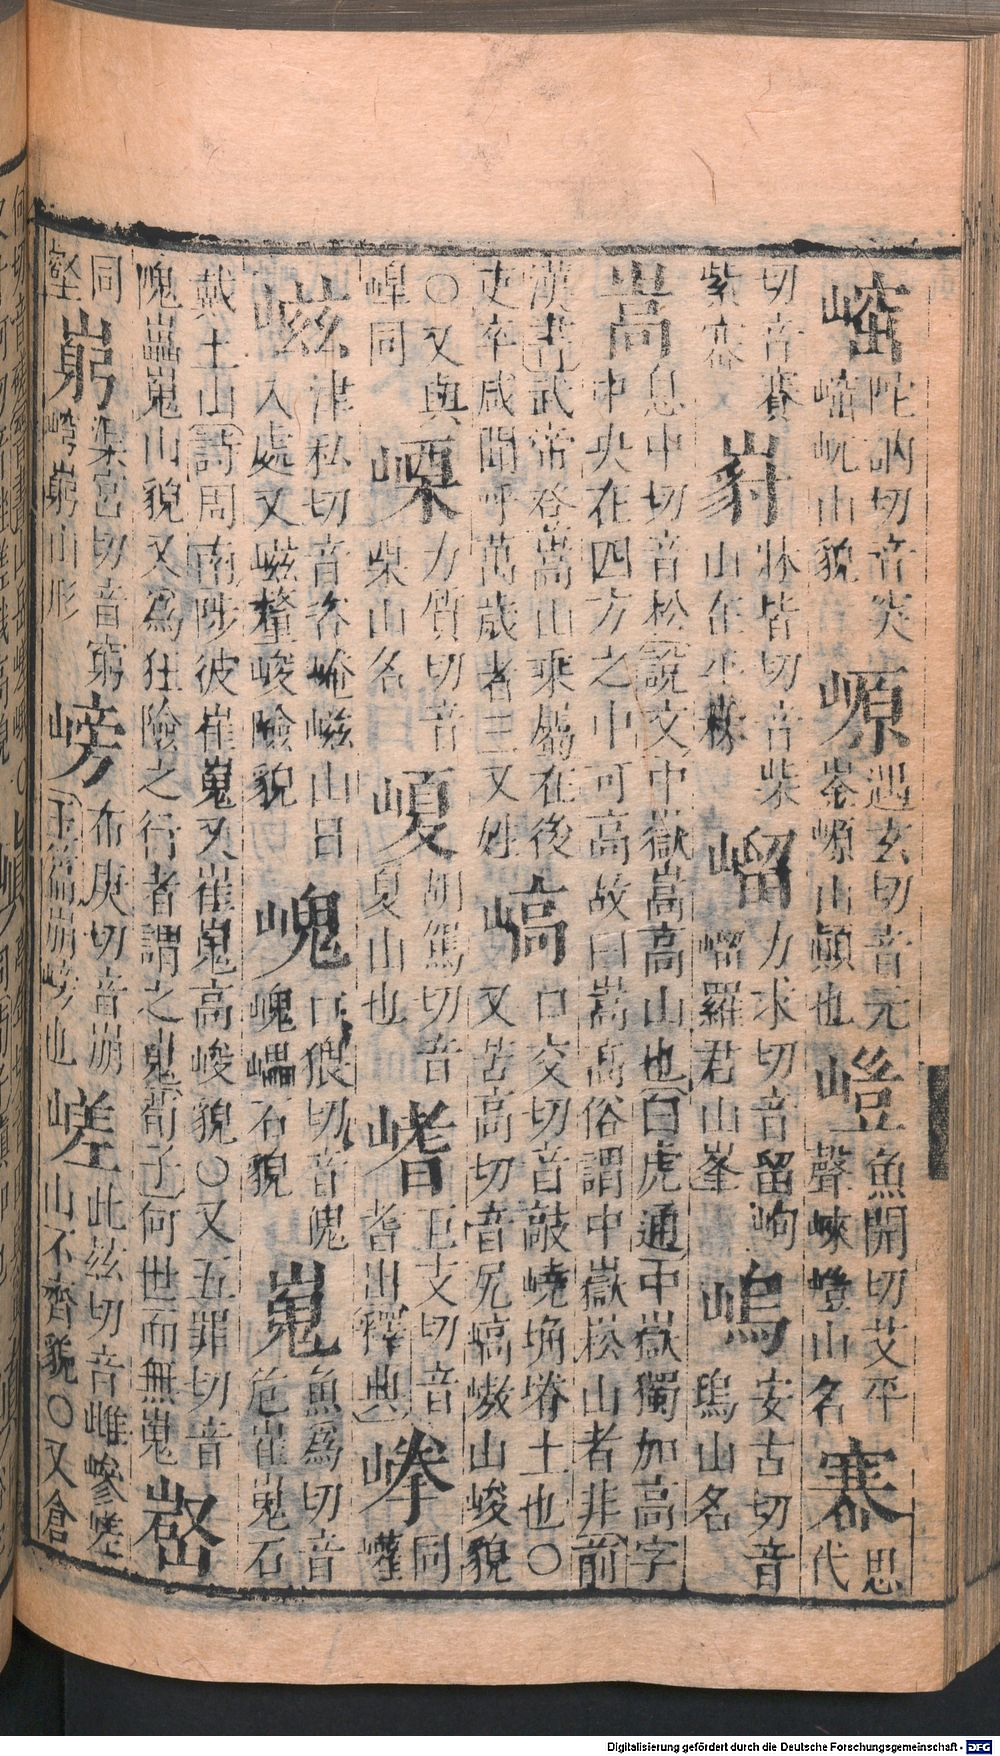 㟮陀訥切音突
崷屼山貌
嫄遇玄切音元
崟嫄山顛也
嵦魚開切艾平
聲崍嵦山名
寨思
代
切音賽
紫寨
牀皆切音柴
山在平林
嵧力求切音留峋
嵧羅君山峯
嵨安古切音
塢山名
嵩息中切音松說文中嶽嵩高山也白虎通中嶽獨加高字
中央在四方之中可高故曰嵩高俗謂中嶽崧山者非前
漢書武帝登嵩山乘屬在後
吏卒咸聞呼萬歲者三又姓
嵪口交切音敲嶢埆塉土也〇
又苦高切音尻嵪嶅山峻貌
〇又與
崲同
㟳力質切音
栗山名
嵈胡駕切音
夏山也
巨支切音
耆出釋典
同
巏
嵫津私切音咨崦嵫山日
入處又嵫釐峻險貌
嵬口猥切音傀
嵬㠥石貌
嵬魚爲切音
危崔嵬石
戴土山詩周南陟彼崔嵬又崔嵬高峻貌〇又五罪切音
隗㠥嵬山貌又爲狂險之行者謂之嵬荀子何世而無嵬
㟯同
壑
嵏渠宮切音窮
山形
嵭布庚切音崩
玉篇崩嵭也
嵯此玆切音雌嵾嵳
山不齊貌〇又倉
Digitalisierung gefördert durch die Deutsche Forschungsgemeinschaft - DFG